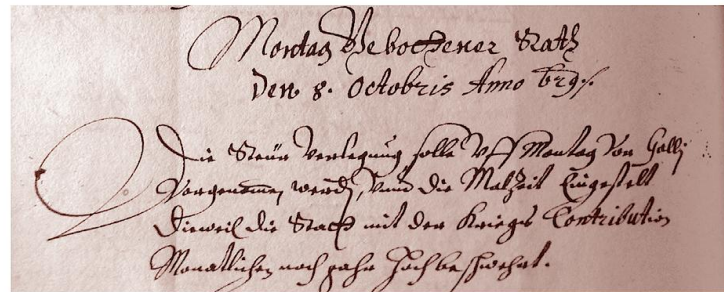 Montag Gebottener Rath
Den 8. Octobris Anno 629.
Die Steür Verlegung solle Vff Montag Vor Galli
Vorgenomen werden, Vnnd die Malzeit Eingestelt
Dieweil die Statt mit der Kriegs Contribution
Monatlichen noch gahr Hoch beschwehrt.